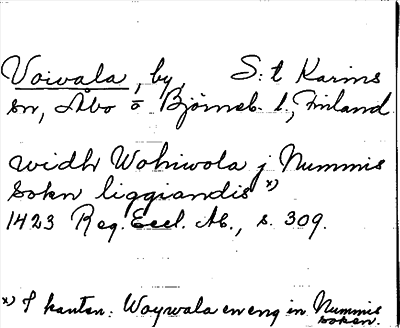 Voivala, by, S:t Karins
sn, Åbo o Björneb. l., Finland
widh Wohiwola j Nummis
Sokn liggiandis x)
1423 Reg. Eccl. Ab., s. 309.
x) I kanten: Woywala en eng in Nummis
soken.